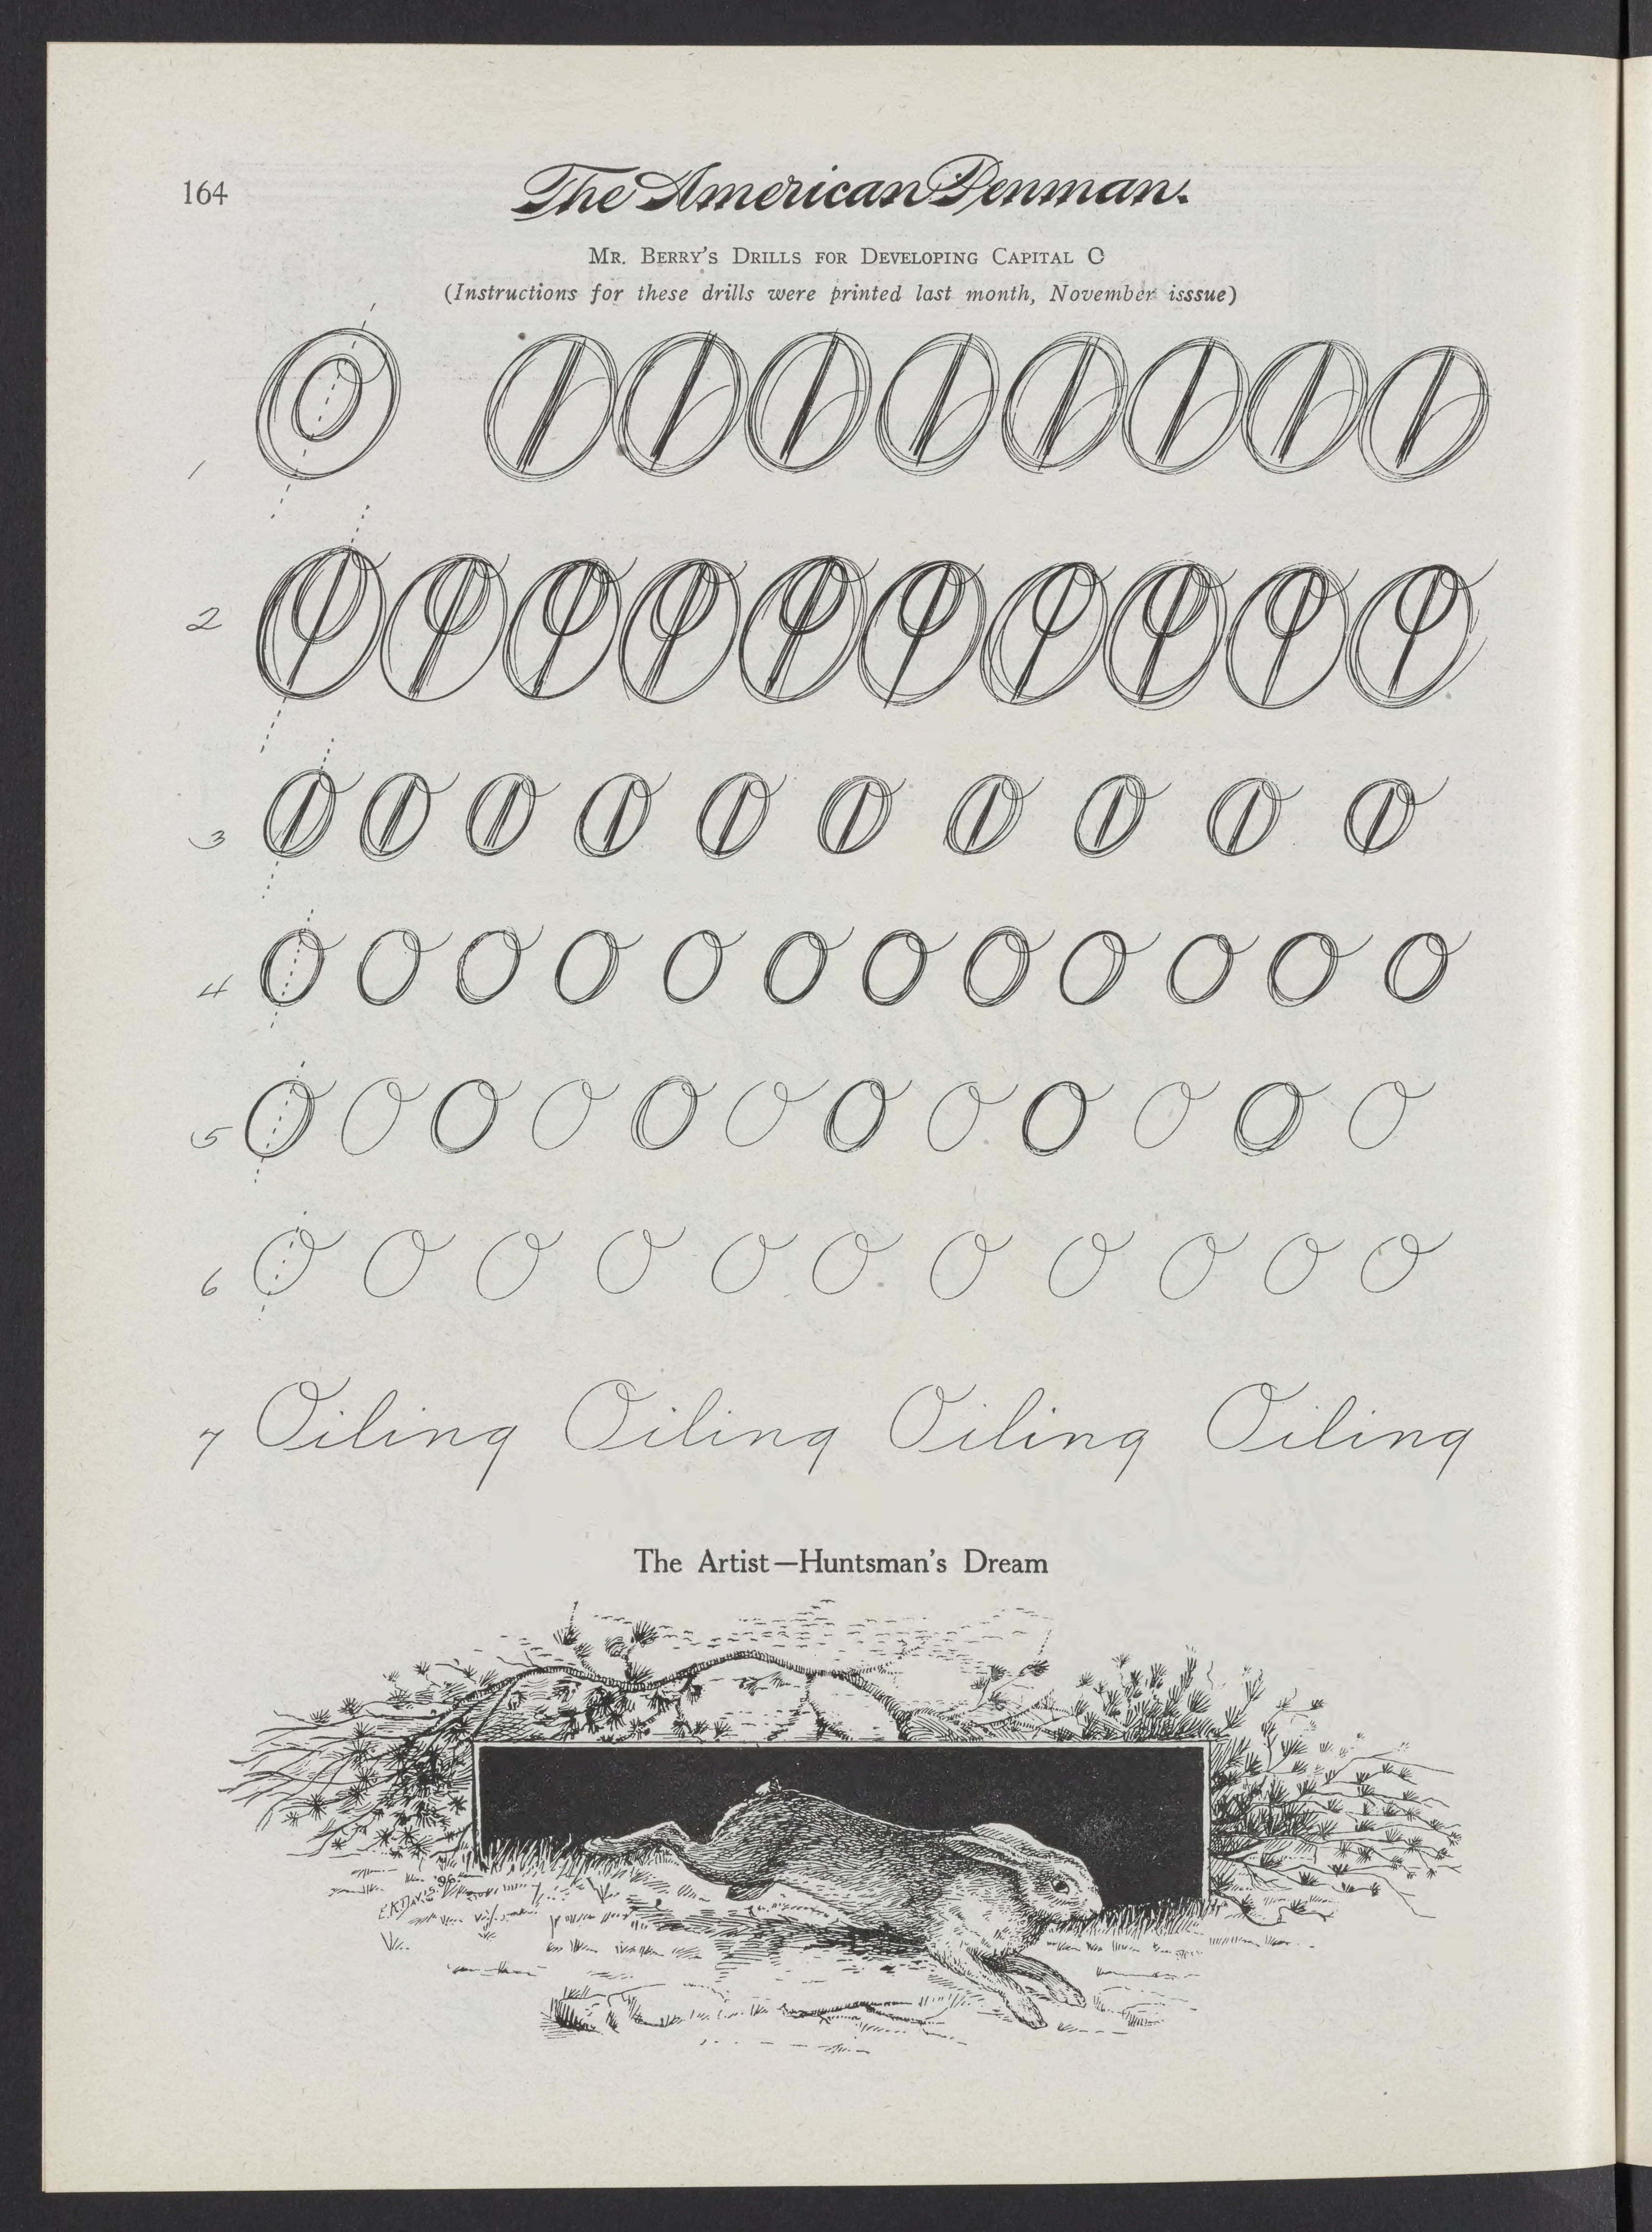 164
The American Penman.
Mr. Berry's Drills for Developing Capital O
(Instructions for these drills were printed last month, November isssue)
1 O
2
3 O O O O O O O O O O
4 O O O O O O O O O O O O
5 O O O O O O O O O O O O
6 O O O O O O O O O O O
7 Oiling Oiling Oiling Oiling
The Artist—Huntsman's Dream
E.K. Davis. '96.